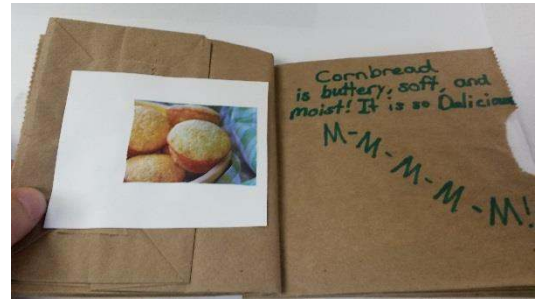 Cornbread
is buttery, soft, and
moist! It is so Delicious
M-M-M-M-M!